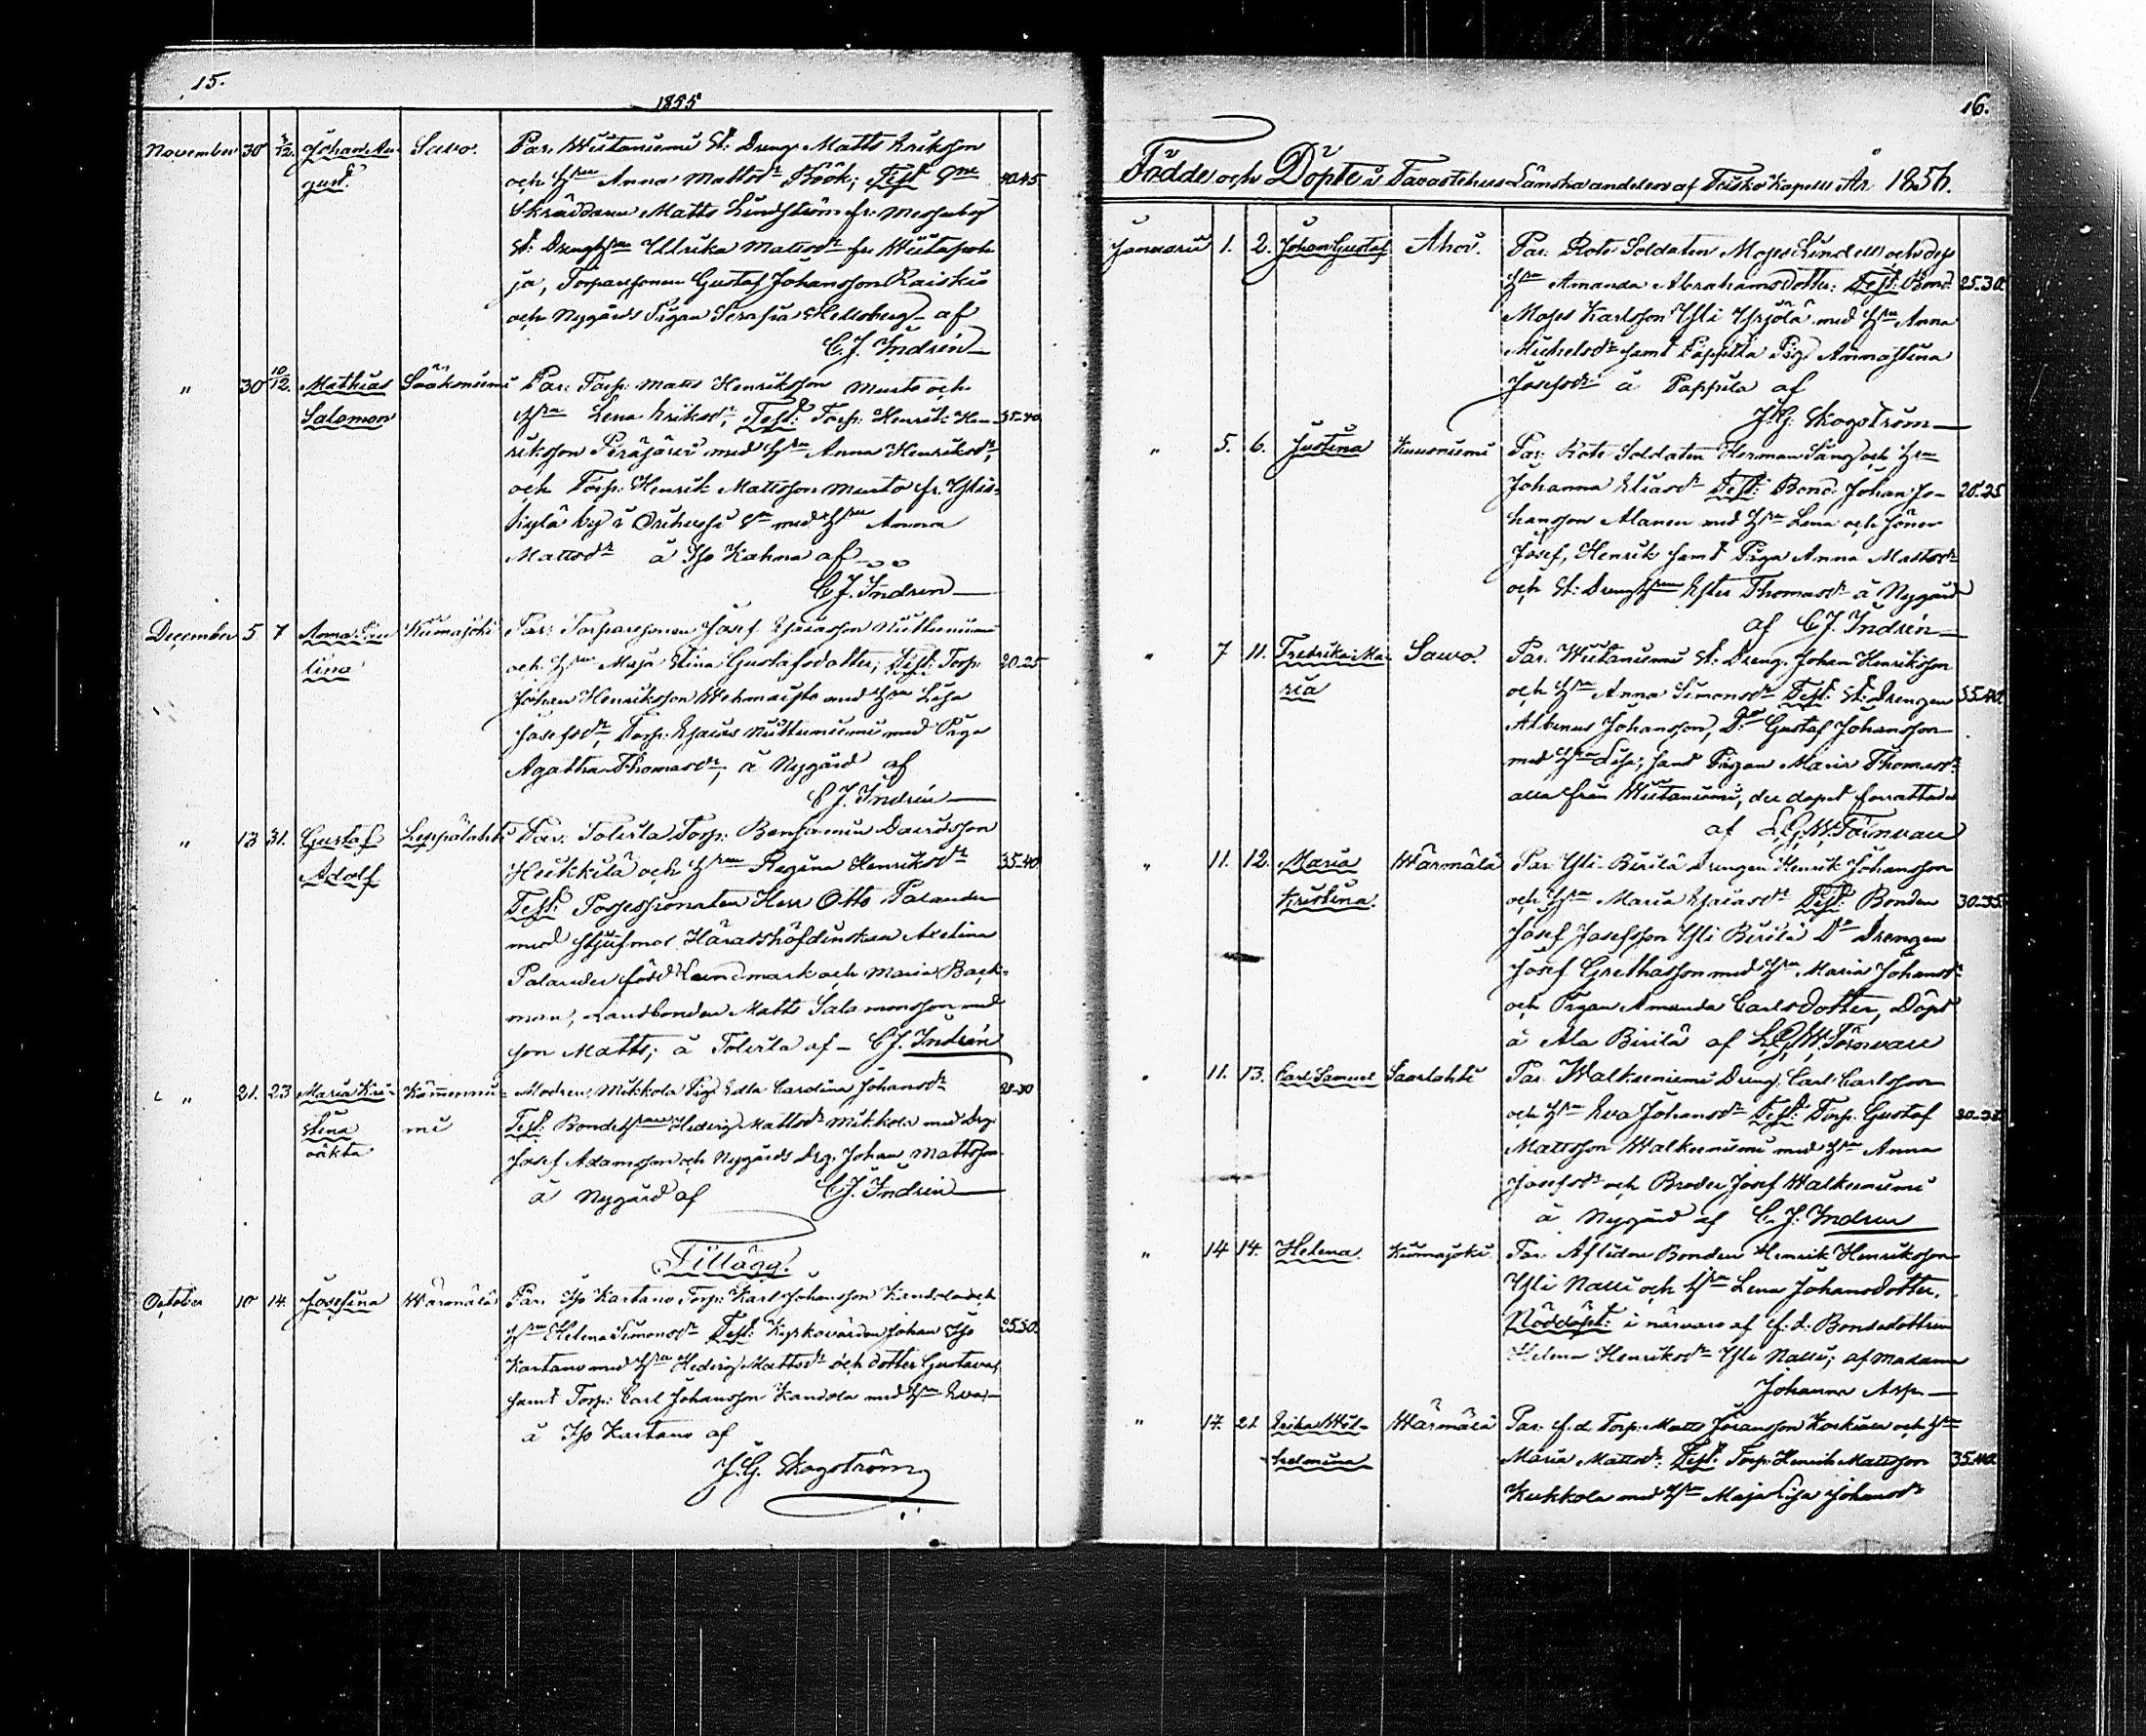 15.
1855
November 30 2/12. Johan Au- Savo. Par. Wiitaniemi St: Dreng Matts Eriksson
gust. och H:stru Anna Mattsd:r Böök; Test: G:ne 40.45.
Skräddaren Matts Lindström fr. Messuby
St: Drengh:stru Ullrika Mattsd:r fr. Wiitapoh-
ja, Torparesonen Gustaf Johansson Raiskio
och Nygårds Pigan Serafia Hellsberg af
C. J. Indrén
" 30 10/12. Mathias Sääksniemi Par: Torp: Matts Henriksson Murto och
Salomon H:stru Lena Eriksd:r, Test: Torp: Henrik Hen- 35-40
riksson Peräjärvi med H:stru Anna Henriksd:r,
och Torp: Henrik Mattsson Murto fr. Ylis-
kylä by i Orihvesi S:n med H:stru Anna
Mattsd:r å Iso Kahna af
C J. Indren
December 5 7 Anna Pau Kiimajoki Par: Torparesonen Josef Esaiasson Niittuniemi
lina och H:stru Maja Stina Gustafsdotter; Test: Torp: 20.25
Johan Henriksson Wehmaisto med H:stru Lisa
Josefsd:r, Torp: Esaias Niittuniemi med Piga
Agatha Thomasd:r, å Nygård af
C J. Indrén
" 13 31. Gustaf Leppälahti Par: Tolerla Torp: Benjamin Davidsson
Adolf Heikkilä och H:stru Regina Henriksd:r 35-40
Test: Possessionaten Herr Otto Palander
med stjufmor Häradshöfdinskan Axelina
Palander född Lundmark och Maria Back-
man, Landbonden Matts Salamonsson med
son Matts; å Tolerla af C J. Indrén
" 21. 23 Maria Kri- Kämmennie- Modren, Mikkola Pig. Edla Carolina Johansd:r 25-30
stina mi Test: Bondeh:stru Hedvig Mattsd:r Mikkola med Drg.
oäkta Josef Adamsson och Nygårds Drg. Johan Mattsson
å Nygård af C J. Indrén
Tillägg.
October 10 14. Josefina Wärmälä Par: Iso Kartano Torp: Karl Johansson Kandola och
H:stru Helena Simonsd:r Test: Kyrkovärden Johan Iso 25.30.
Kartano med H:stru Hedvig Mattsd:r och dotter Gustava,
samt Torp: Carl Johansson Kandola med H:stru Eva,
å Iso Kartano af
J. G. Skogström
16.
Födde och Döpte i Tavastehus Länska andelen af Teisko Kapell År 1856.
Januarii 1. 2. Johan Gustaf Ahoi. Par. Rote Soldaten Moses Lindell och dess
H:stru Amanda Abrahamsdotter: Test: Bond. 25.30.
Moses Karlsson Yli Yrjölä med H:stru Anna
Michelsd:r samt Pappila Pig. Anna Stina
Josefsd:r å Pappila af
J. G. Skogström
" 5. 6. Justina Kuusniemi Par: Rote Soldaten Herman Sång och H:stru
Johanna Eliasd:r Test: Bond: Johan Jo- 20-25
hansson Alanen med H:stru Lena och söner
Josef, Henrik samt Piga Anna Mattsd:r
och St: Drengh:stru Ester Thomasd:r å Nygård
af C J. Indrén
" 7 11. Fredrika Ma- Sawo. Par. Wiitaniemi St: Dreng. Johan Henriksson
ria och H:stru Anna Simonsd:r Test: St: Drengen 35.40.
Albinus Johansson, D:o Gustaf Johansson
med H:stru Lisa; samt Pigan Maria Thomasd:r
alla från Wiitaniemi, der dopet förrättades
af L. G. W. Törnvau
" 11. 12. Maria Wärmälä Par. Yli Birilä Drengen Henrik Johansson
Kristina. och H:stru Maria Esaiasd:r Test: Bonden 30-35
Josef Josefsson Yli Birilä D:o Drengen
Josef Grelhasson med H:stru Maria Johansd:r
och Pigan Amanda Carlsdotter, Döpt
å Ala Birilä af L. G. W. Törnvau
" 11. 13. Carl Samuel Saarlahti Par. Walkeeniemi Dreng. Carl Carlsson
och H:stru Eva Johansd:r Test: Torp: Gustaf 30-35
Mattsson Walkeeniemi med H:stru Anna
Josefsd:r och Broder Josef Walkeeniemi
å Nygård af C. J. Indren
" 14 14. Helena. Kiimajoki Par. Aflidne Bonden Henrik Henriksson
Yli Nalli och H:stru Lena Johansdotter.
Nöddöpt: i närvaro af f. d. Bondedottren
Helena Henriksd:r Yli Nalli; af Madame
Johanna Asp
" 17. 21 Erika Wil- Wärmälä Par: f. d. Torp: Matts Göransson Koskinen och H:stru
helmina Maria Mattsd:r: Test: Torp: Henrik Mattsson 35.40.
Kukkola med H:stru Maja Lisa Johansd:r